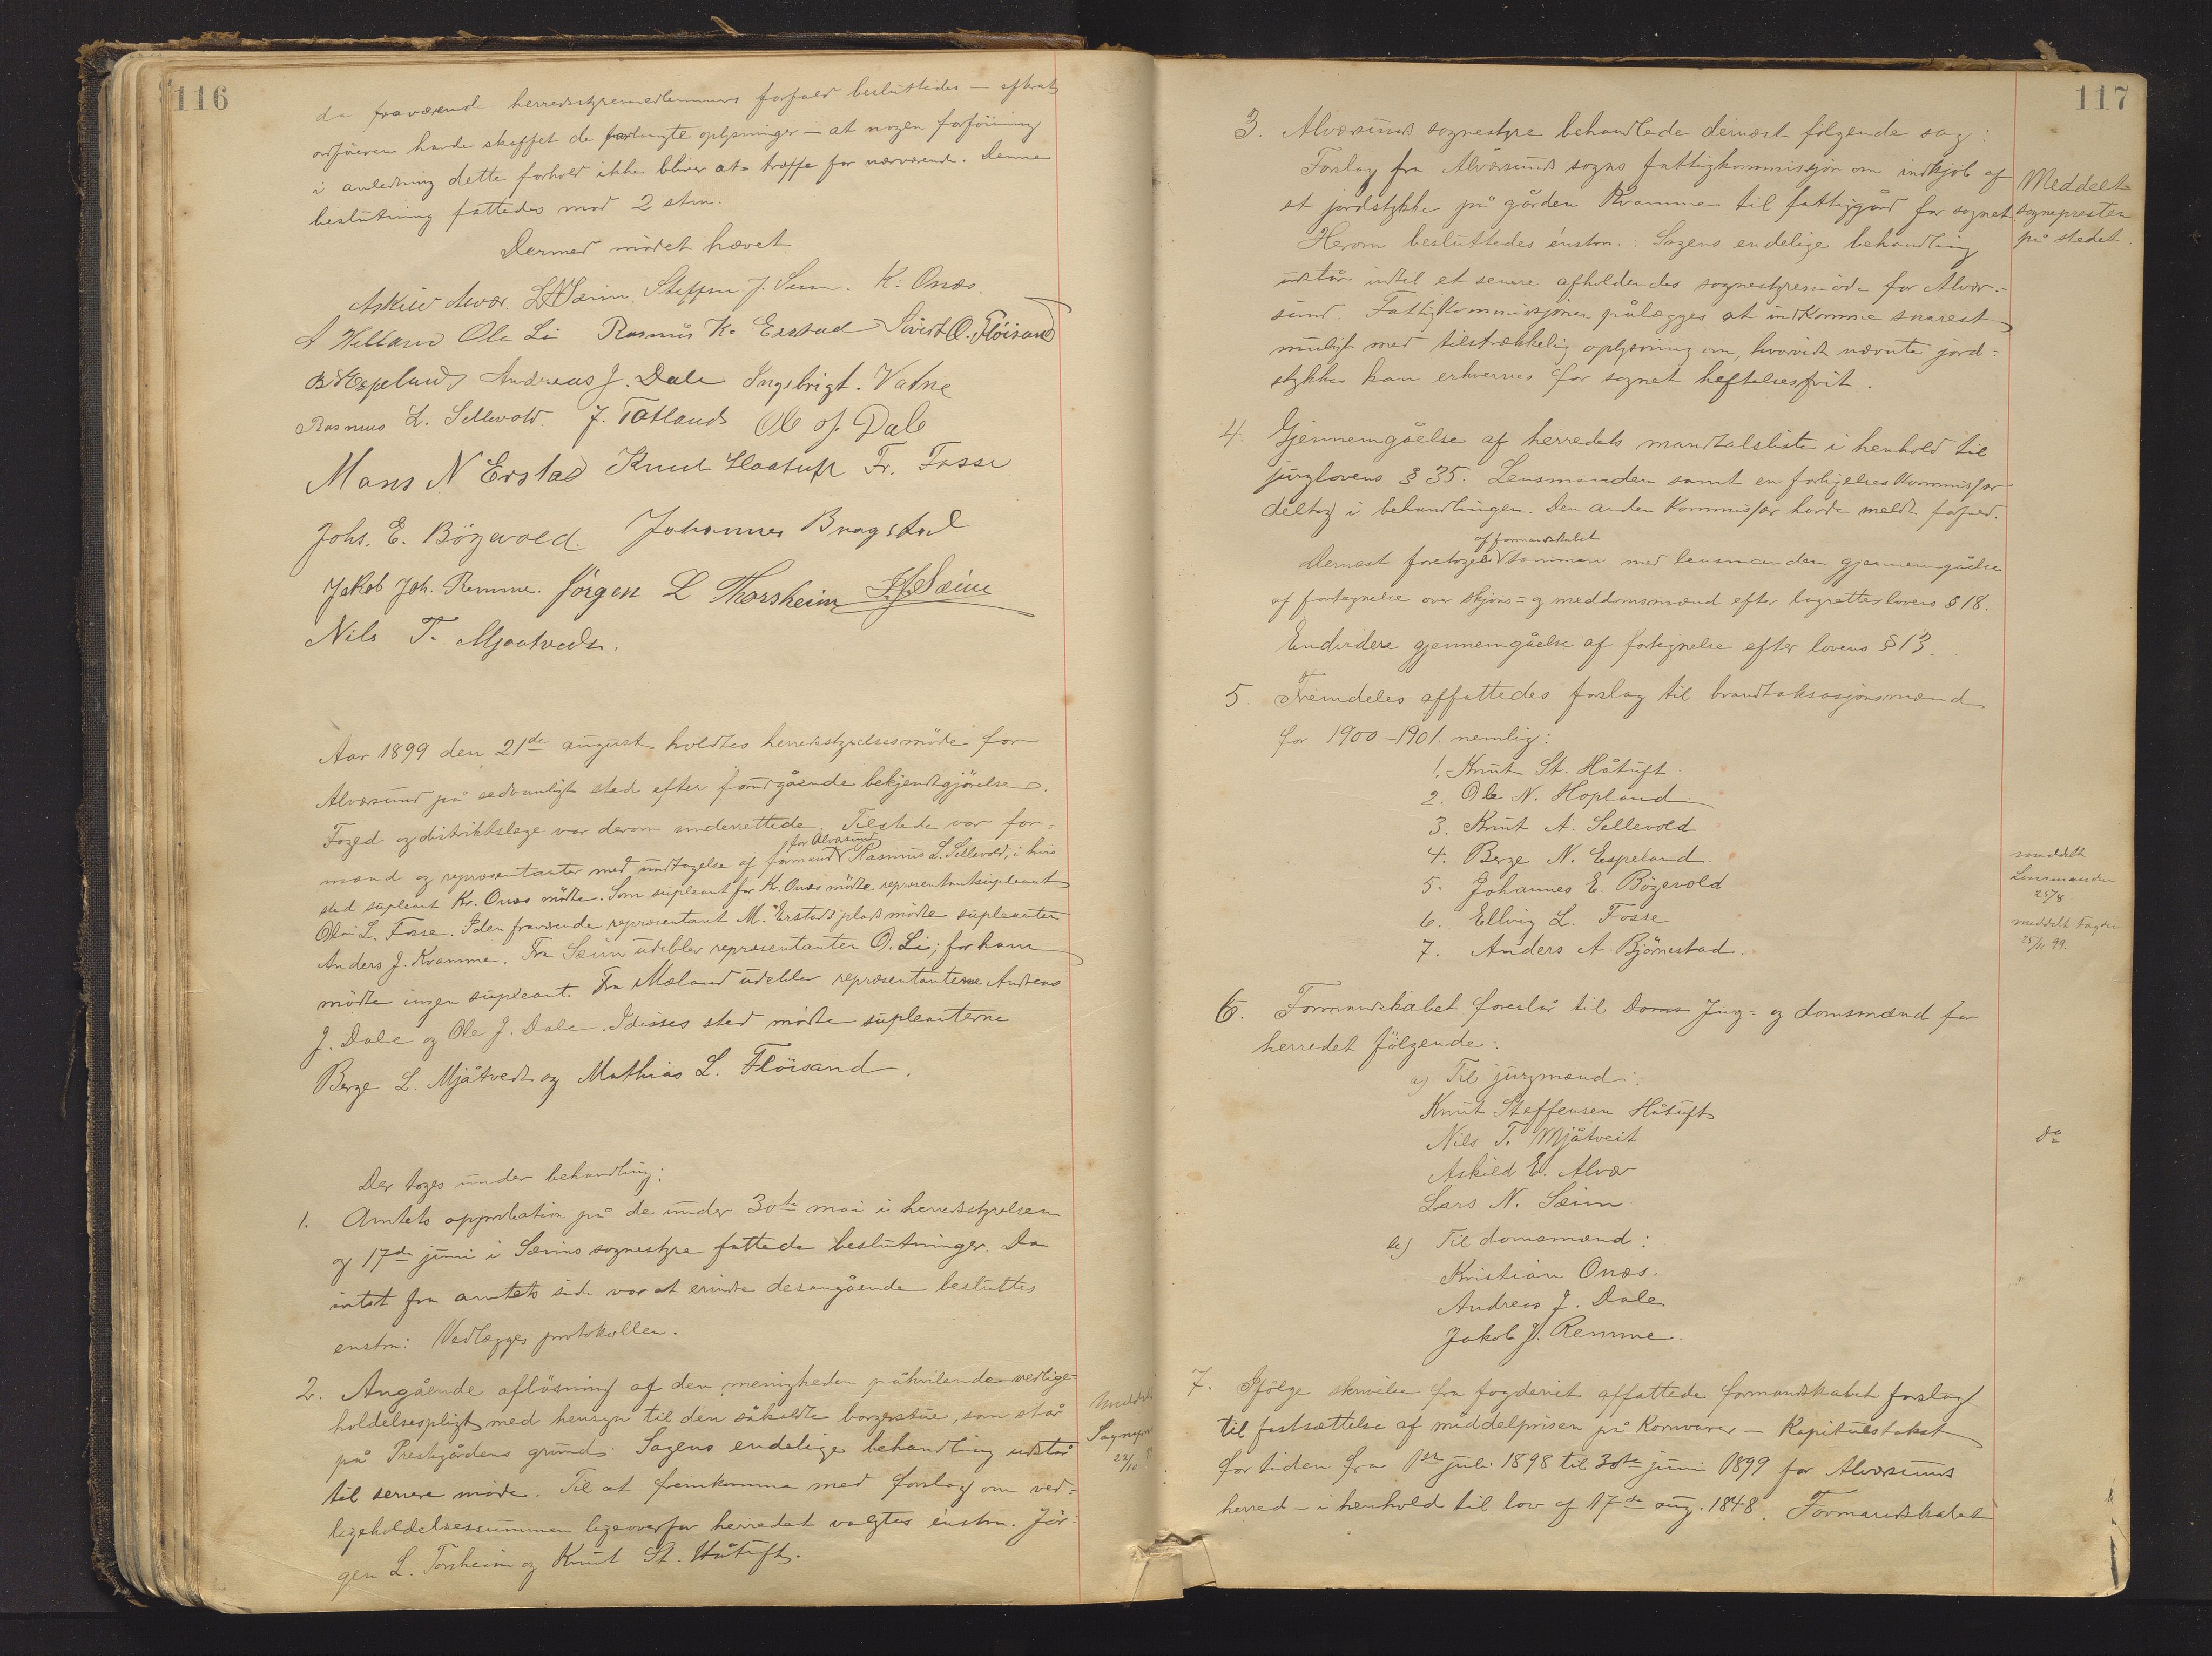 116
da fraværende herredsstyremedlemmers forfald besluttedes – efterat
ordføreren havde skaffet de forlangte oplysninger – at nogen forføining
i anledning dette forhold ikke bliver at træffe for nærværende. Denne
beslutning fattedes mod 2 stm.
Dermed mödet hævet
Askild Alvær. L N Sæim. Steffen J. Seim. K. Onæs.
A Helland Ole Li Rasmus K. Erstad Sivert O. Flöisand
B N Espeland Andreas J. Dale Ingebrigt. Vatne
Rasmus L. Sellevold. J. Totland Ole J. Dale
Mons N Erstad Knud Haatuft Fr. Fosse
Johs. E. Bögevold. Johannes Bragstad
Jakob Joh. Remme. Jörgen L Thorsheim J. J. Sæim
Nils T. Mjaatvedt.
Aar 1899 den 21de august holdtes herredsstyrelsesmöde for
Alversund på sedvanligt sted efter forudgående bekjendtgjörelse.
Foged og distriktslæge var derom underrettede. Tilstede var for-
for Alversund
mænd og repræsentanter med undtagelse af formand Rasmus L. Sellevold, i hvis
sted supleant Kr. Onæs mödte. Som supleant for K. Onæs mödte repræsentantsupleant
Olai L. Fosse. I den fraværende repræsentant M. Erstads plads mödte supleanten
Anders J. Kvamme. Fra Sæim udeblev repræsentanten O. Li; for ham
mödte ingen supleant. Fra Mæland udeblev repræsentanterne Andreas
J. Dale og Ole J. Dale. I disses sted mödte supleanterne
Berge L. Mjåtvedt og Mathias L. Flöisand.
Der toges under behandling:
1. Amtets approbation på de under 30te mai i herredsstyrelsen
og 17de juni i Sæims sognestyre fattede beslutninger. Da
intet fra amtets side var at erindre desangående besluttes
enstm: Vedlægges protokollen.
2. Angående aflösning af den menigheden påhvilende vedlige-
holdelsespligt med hensyn til den såkaldte borgerstue, som står
på Prestegårdens grund. Sagens endelige behandling udstår
til senere möde. Til at fremkomme med forslag om ved-
ligeholdelsessummen ligeoverfor herredet valgtes énstm. Jör-
gen L. Torsheim og Knut St. Håtuft.
22/10
117
3. Alversunds sognestyre behandlede dernæst fölgende sag:
Forslag fra Alversunds sogns fattigkommissjon om indkjöb af
et jordstykke på gården Kvamme til fattiggård for sognet
Herom besluttedes énstm.: Sagens endelige behandling
udstår indtil et senere afholdendes sognestyremöde for Alver-
sund. Fattigkommissjonen pålægges at indkomme snarest
muligt med tilstrækkelig oplysning om, hvorvidt nævnte jord-
stykke kan erhverves for sognet heftelsesfrit.
Meddelt
sognepresten
på stedet.
4. Gjennemgåelse af herredets mandtalsliste i henhold til
jurylovens § 35. Lensmanden samt en forligelseskommissær
deltog i behandlingen. Den anden kommissær havde meldt forfald.
af formandskabet
Dernæst foretoges sammen med lensmanden gjennemgåelse
af fortegnelse over skjöns- og meddomsmænd efter lagretteslovens § 18.
Endvidere gjennemgåelse af fortegnelse efter lovens § 13.
5. Fremdeles affattedes forslag til brandtaksasjonsmænd
for 1900–1901. nemlig:
1. Knut St. Håtuft.
2. Ole N. Hopland.
3. Knut A. Sellevold
4. Berge N. Espeland.
5. Johannes E. Bögevold
6. Ellvig L. Fosse
7. Anders A. Björnestad.
meddelt
Lensmanden
25/8
meddelt Fogden
25/11 99.
6. Formandskabet foreslår til Doms Jury- og domsmænd for
herredet fölgende:
a) Til jurymænd:
Knut Steffensen Håtuft
Nils T. Mjåtveit
Askild E. Alvær
Lars N. Sæim.
b) Til domsmænd:
Kristian Onæs.
Andreas J. Dale.
Jakob J. Remme.
do
7. Ifölge skrivelse fra fogderiet affattede formandskabet forslag
til fastsættelse af middelprisen på kornvarer – Kapitelstakst
for tiden fra 1ste juli 1898 til 30te juni 1899 for Alversunds
herred – i henhold til lov af 17de aug. 1848. Formandskabet